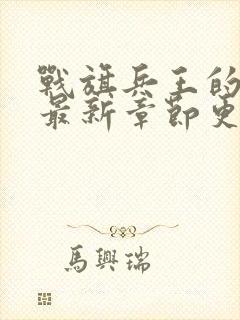 戰旗兵王的
最新章節更
馬興瑞